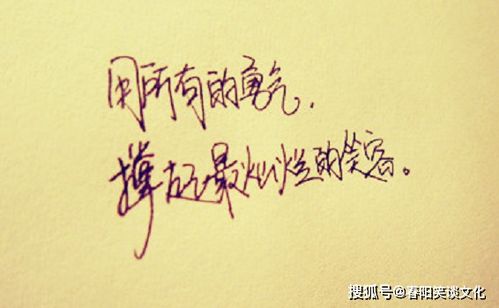 用所有的勇气,
撑起最灿烂的笑容。
搜狐号@春阳笑谈文化